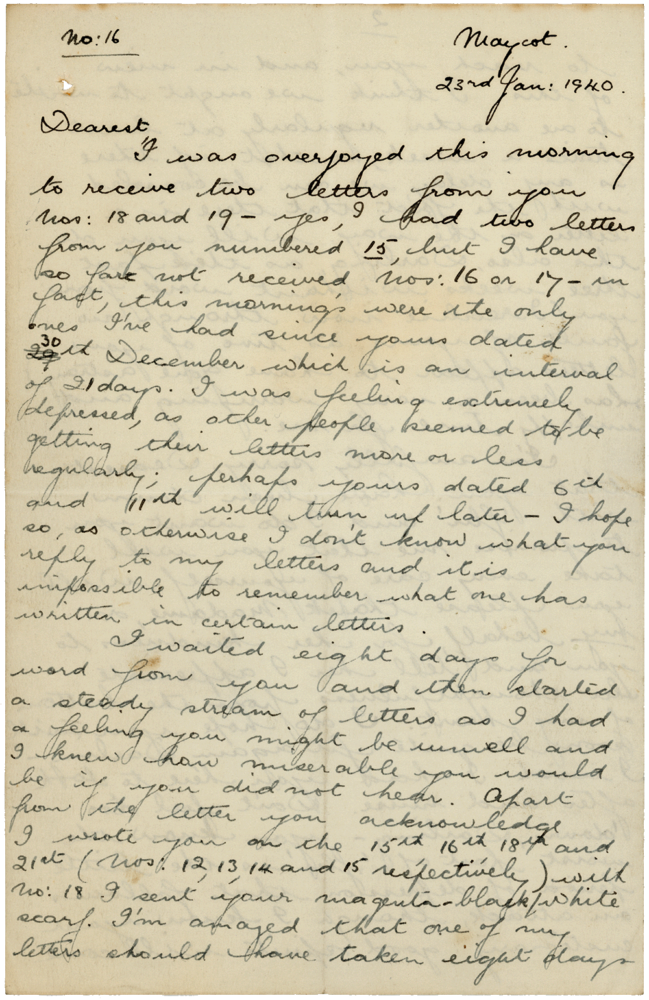 No: 16
Maycot.
23rd Jan: 1940.
Dearest
I was overjoyed this morning
to receive two letters from you
Nos: 18 and 19 - yes, I had two letters
from you numbered 15, but I have
so far not received Nos: 16 or 17 - in
fact, this morning's were the only
ones I've had since yours dated
30th December which is an interval
of 21 days. I was feeling extremely
depressed, as other people seemed to be
getting their letters more or less
regularly; perhaps yours dated 6th
and 11th will turn up later - I hope
so, as otherwise I don't know what you
reply to my letters and it is
impossible to remember what one has
written in certain letters.
I waited eight days for
word from you and then started
a steady stream of letters as I had
a feeling you might be unwell and
I knew how miserable you would
be if you did not hear. Apart
from the letter you acknowledge
I wrote you on the 15th 16th 18th and
21st (Nos: 12, 13, 14 and 15 respectively) with
No: 18 I sent your magenta-black/white
scarf. I'm amazed that one of my
letters should have taken eight days